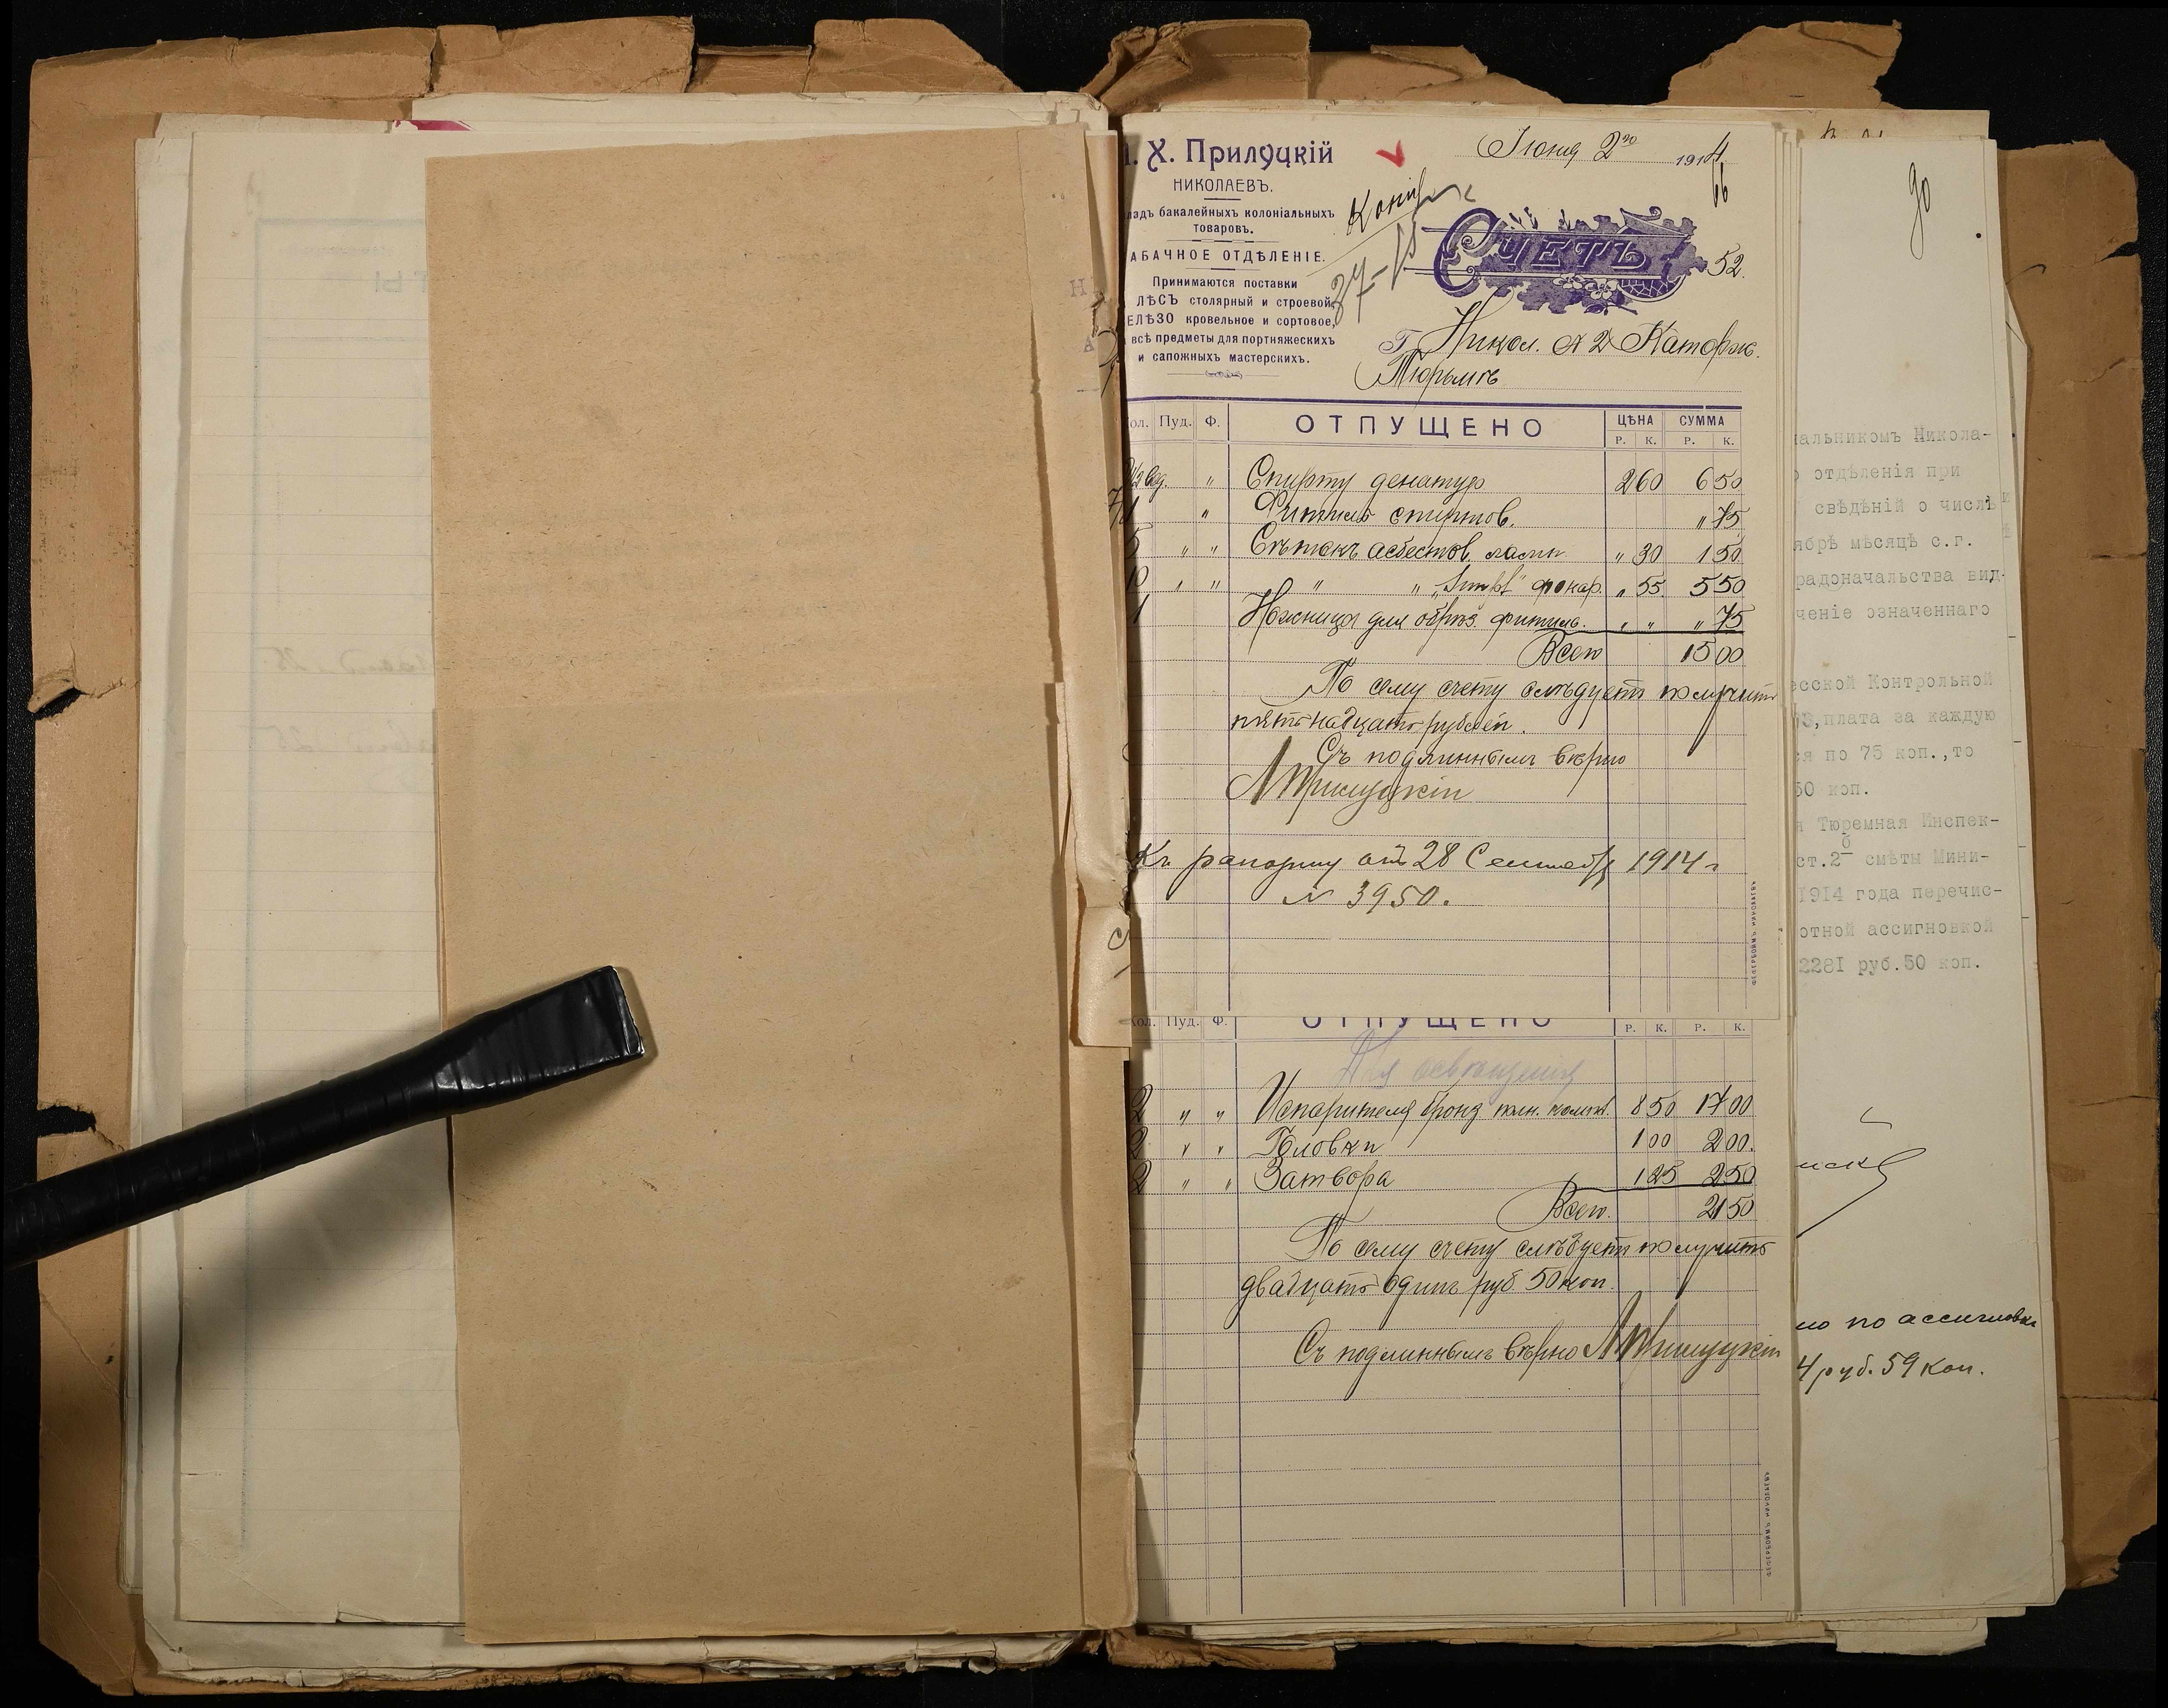 . Х. Прилуцкій
НИКОЛАЕВЪ.
ладъ бакалейныхъ колоніальныхъ
товаровъ.
АБАЧНОЕ ОТДѢЛЕНІЕ.
Принимаются поставки
ЛѢСЪ столярный и строевой,
ЕЛѢЗО кровельное и сортовое,
всѣ предметы для портняжескихъ
и сапожныхъ мастерскихъ.
Іюня 2го 1914
66
Копія
37-
СЧЕТЪ
52.
Г. Никол. Каторж.
Тюрьмѣ
ол. Пуд. Ф. ОТПУЩЕНО ЦѢНА СУММА
Р. К. Р. К.
1/2 вед. " Спирту денатур 2 60 6 50
1 " Фитиль спиртов. " 75
5 " " Сѣтокъ асбестов. " 30 1 50
10 " " " " " 55 5 50
1 Ножницы для обрѣз. фитиль. " " " 75
Всего 15 00
По сему счету слѣдуетъ получить
пятнадцать рублей.
Съ подлиннымъ вѣрно
Прилуцкій
Къ рапорту отъ 28 Сентября 1914 г
№ 3950.
ФЕФЕРБОЙМЪ НИКОЛАЕВЪ
Кол. Пуд. Ф. ОТПУЩЕНО Р. К. Р. К.
Для освѣщенія
2 " " Испарителя бронз 8 50 17 00
2 " " Головки 1 00 2 00.
2 " " Затвора 1 25 2 50
Всего. 21 50
По сему счету слѣдуетъ получить
двадцать одинъ руб. 50 коп.
Съ подлиннымъ вѣрно Прилуцкій
ФЕФЕРБОЙМЪ НИКОЛАЕВЪ
90
альникомъ Никола-
отдѣленія при
свѣдѣній о числѣ
ябрѣ мѣсяцѣ с.г.
радоначальства вид-
ченіе означеннаго
есской Контрольной
3, плата за каждую
ся по 75 коп., то
50 коп.
я Тюремная Инспек-
ст.2б смѣты Мини-
1914 года перечис-
отной ассигновкой
2281 руб.50 коп.
но по ассигновкѣ
4 руб. 59 коп.